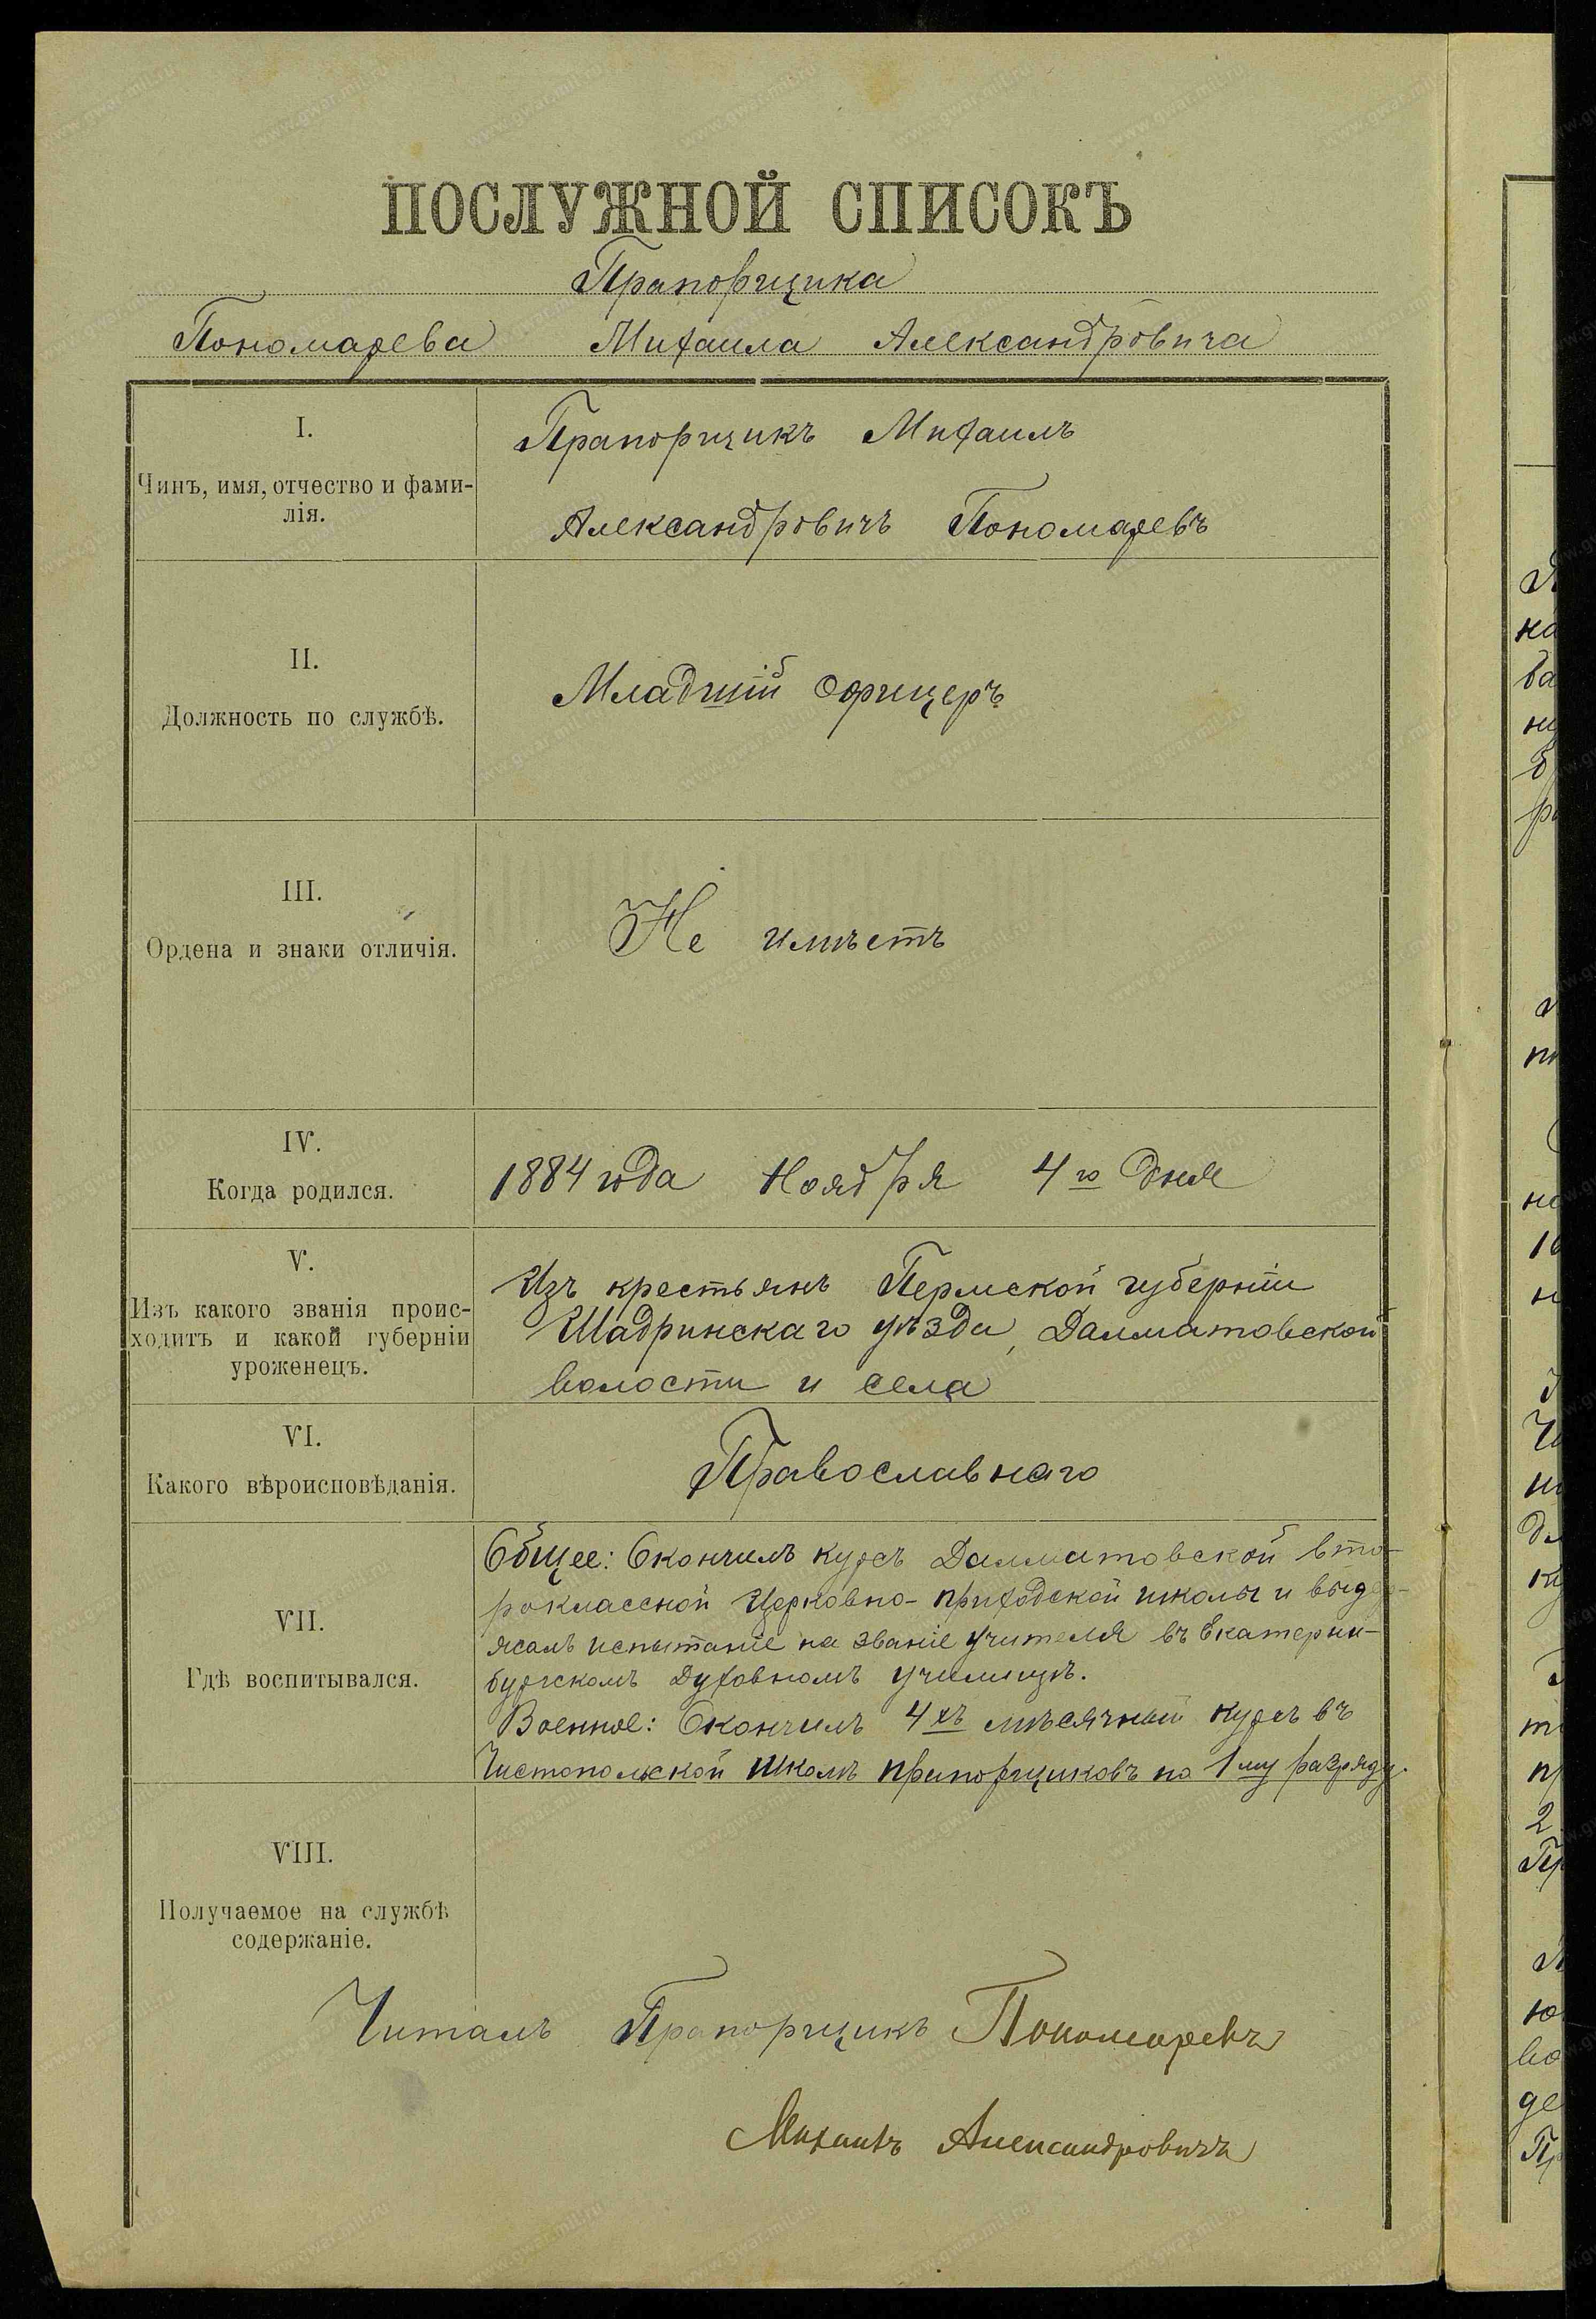 ПОСЛУЖНОЙ СПИСОКЪ
Прапорщика
Пономарева Михаила Александровича
I.
Чинъ, имя, отчество и фами-
лія.
Прапорщикъ Михаилъ
Александровичъ Пономаревъ
II.
Должность по службѣ.
Младшій офицеръ
III.
Ордена и знаки отличія.
Не имѣетъ
IV.
Когда родился.
1884 года Ноября 4го дня
V.
Изъ какого званія проис-
ходитъ и какой губерніи
уроженецъ.
Изъ крестьянъ Пермской губерніи
Шадринскаго уѣзда, Далматовской
волости и села
VI.
Какого вѣроисповѣданія.
Православнаго
VII.
Гдѣ воспитывался.
Общее: Окончилъ курсъ Далматовской вто-
роклассной Церковно-приходской школы и выдер-
жалъ испытаніе на званіе учителя въ Екатерин-
бургскомъ Духовномъ училищѣ.
Военное: Окончилъ 4хъ мѣсячный курсъ въ
Чистопольской школѣ прапорщиковъ по 1му разряду.
VIII.
Получаемое на службѣ
содержаніе.
Читалъ Прапорщикъ Пономаревъ
Михаилъ Александровичъ
www.gwar.mil.ru